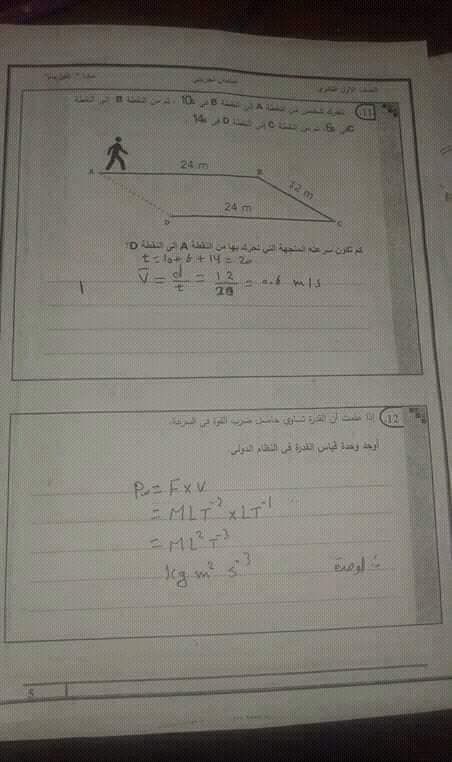 الصف الأول الثانوي
امتحان تجريبي
11.
تحرك شخص من النقطة A إلى النقطة B في 10s ، ثم من النقطة B إلى النقطة
C في 6s، ثم من النقطة C إلى النقطة D في 14s
A
24 m
B
12 m
24 m
D
C
كم تكون سرعته المتجهة التي تحرك بها من النقطة A الى النقطة D؟
t = 10 + 6 + 14 =
V̄ = d/t = 12/ = 0.6 m/s
12.
إذا علمت أن القدرة تساوي حاصل ضرب القوة في السرعة،
أوجد وحدة قياس القدرة في النظام الدولي.
Pw = F × V
= MLT⁻² × LT⁻¹
= ML² T⁻³
kg m² s⁻³
5